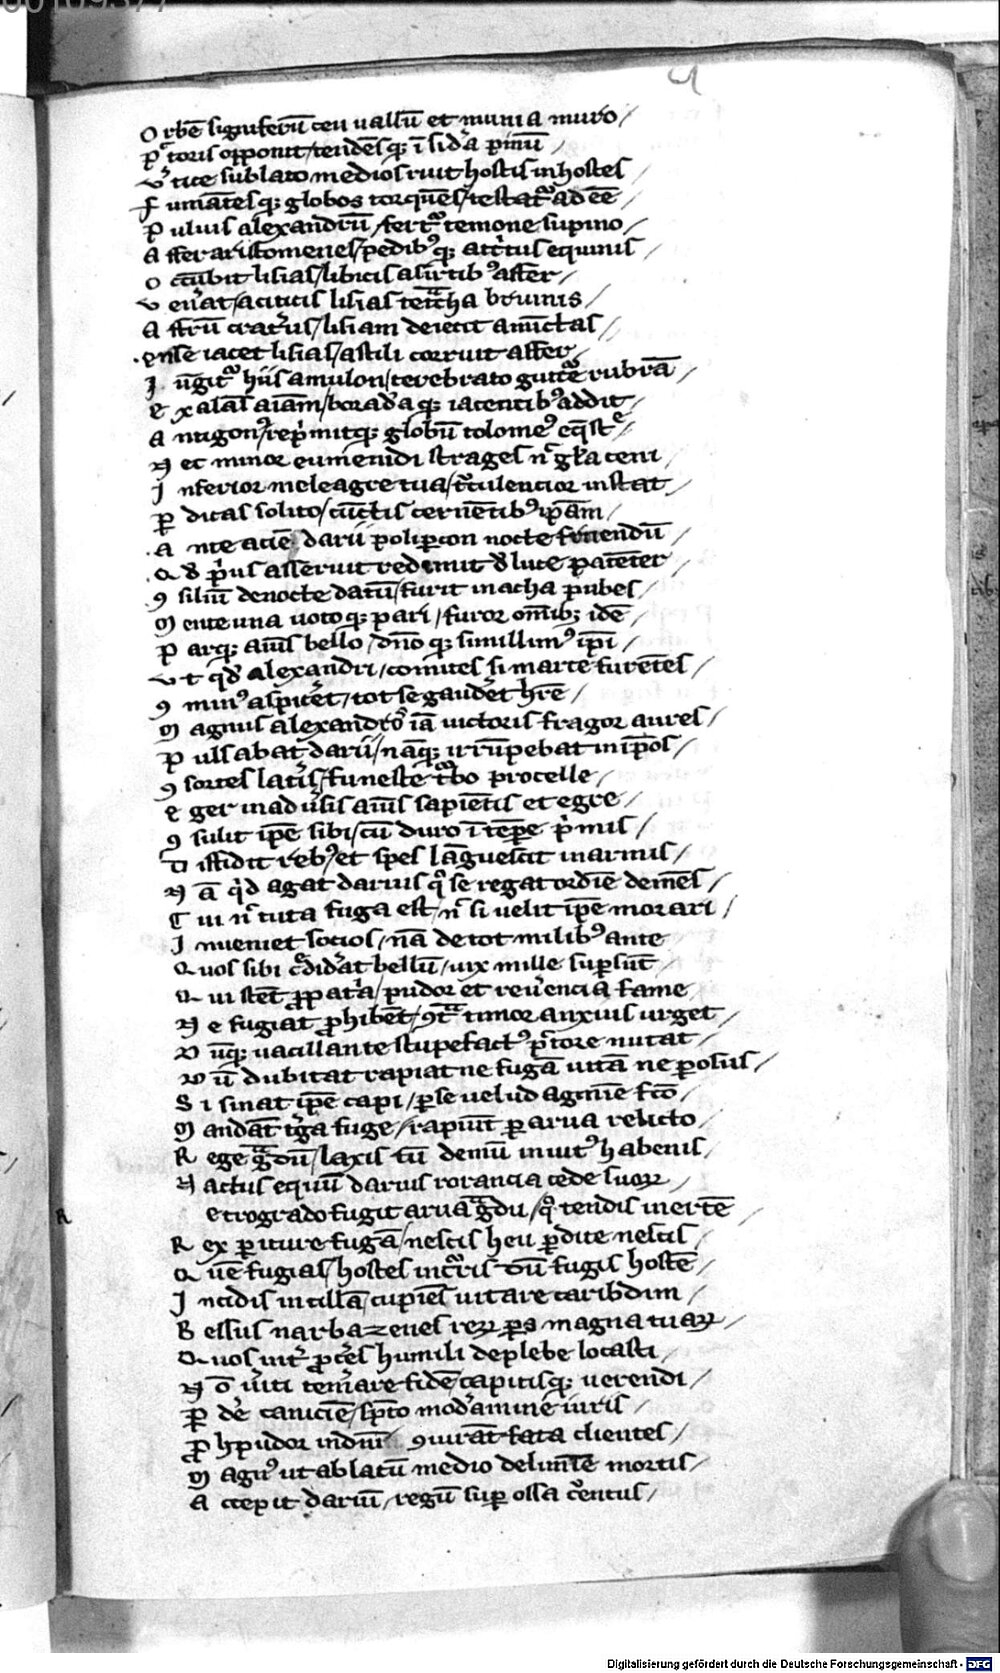 00109377
Orbē signiferū ceu uallū et munia muro/
Pectoris opponit/tendēsq; ī sidera pinū/
Vertice sublato medios ruit hostis in hostes
Fumātesq; globos torquēs/testatur adeē/
Puluis alexandrū/fertur temone supino/
Affer aristomenes/pedib9q; attritus equinis/
Occūbit lisias/libicis a sirtib9 affer/
Venerat/actiticis lisias
Affrū craterus/lisiam deiecit amictas/
Ense iacet lisias/astili corruit affer/
Iūgitur hiis amulon/terebrato gutture rubrā/
Exalās aīam/ iacentib9 addit/
Antigon9/reprimitq; globū tolome9 eqstre/
Nec minor eumenidi strages nr gla ceni/
Inferior meleagre tua/truculencior instat/
Perdicas solito/cūctis cernētib9 ipsam/
Ante aciē darii polipercon nocte fruendū/
Qd prius asseruit redimit de luce patēter
9siliū de nocte datū/furit in acha pubes/
Mente una uotoq; pari/furor omib; idē/
Parq; aīus bello/dnoq; simillim9 ipsi/
Vt qd alexandri/comites si marte furētes/
9min9 aspiceret/tot se gauderet hre/
Magnus alexandro iā uictoris fragor aures/
Pulsabat darii/nāq; irrūpebat in ipsos/
9sortes lateris/funeste turbo procelle/
Eger in aduersis aīus sapiētis et egre/
9sulit ipse sibi/cū duro ī tempe primis/
Diffidit reb9/et spes lāguescit in armis/
Nā qid agat darius qo se regat ordīe demēs/
Cui nō tuta fuga est/nr si uelit ipse morari/
Inueniet socios/nā de tot milib9 ante
Quos sibi crediderat bellū/uix mille supsūt/
Qui stēt pro patria/pudor et reuerencia fame
Ne fugiat prohibēt/9tra timor anxius urget/
Dūq; uacillante stupefact9 pectore nutat/
Dū dubitat rapiat ne fugā uitā ne perosus/
Si sinat ipse capi/per se uelud agmīe fcō/
Mandāt terga fuge/rapiūt per arua relicto/
Rege gradū/laxis tū demū inuit9 habenis/
Nactus equū darius rorancia cede suorum
Retrogrado fugit arua gradu/qo tendis inertē/
Rex periture fugā/nescis heu perdite nescis/
Quē fugias/hostes incurris dū fugis hostē/
Incidis in cillā/cupiēs uitare caribdim/
Bessus narbazenes rerum pars magna tuarum/
Quos inter proceres humili de plebe locasti/
Nō ueriti temerare fidē/capitisq; uerendi/
Perdere caniciē/spreto moderamine iuris/
Proh pudor 9iurāt fata clientes/
Magn9 ut ablatū medio delimīe mortis/
Accepit dariū/regū super ossa cruentus/
R
Digitalisierung gefördert durch die Deutsche Forschungsgemeinschaft - DFG